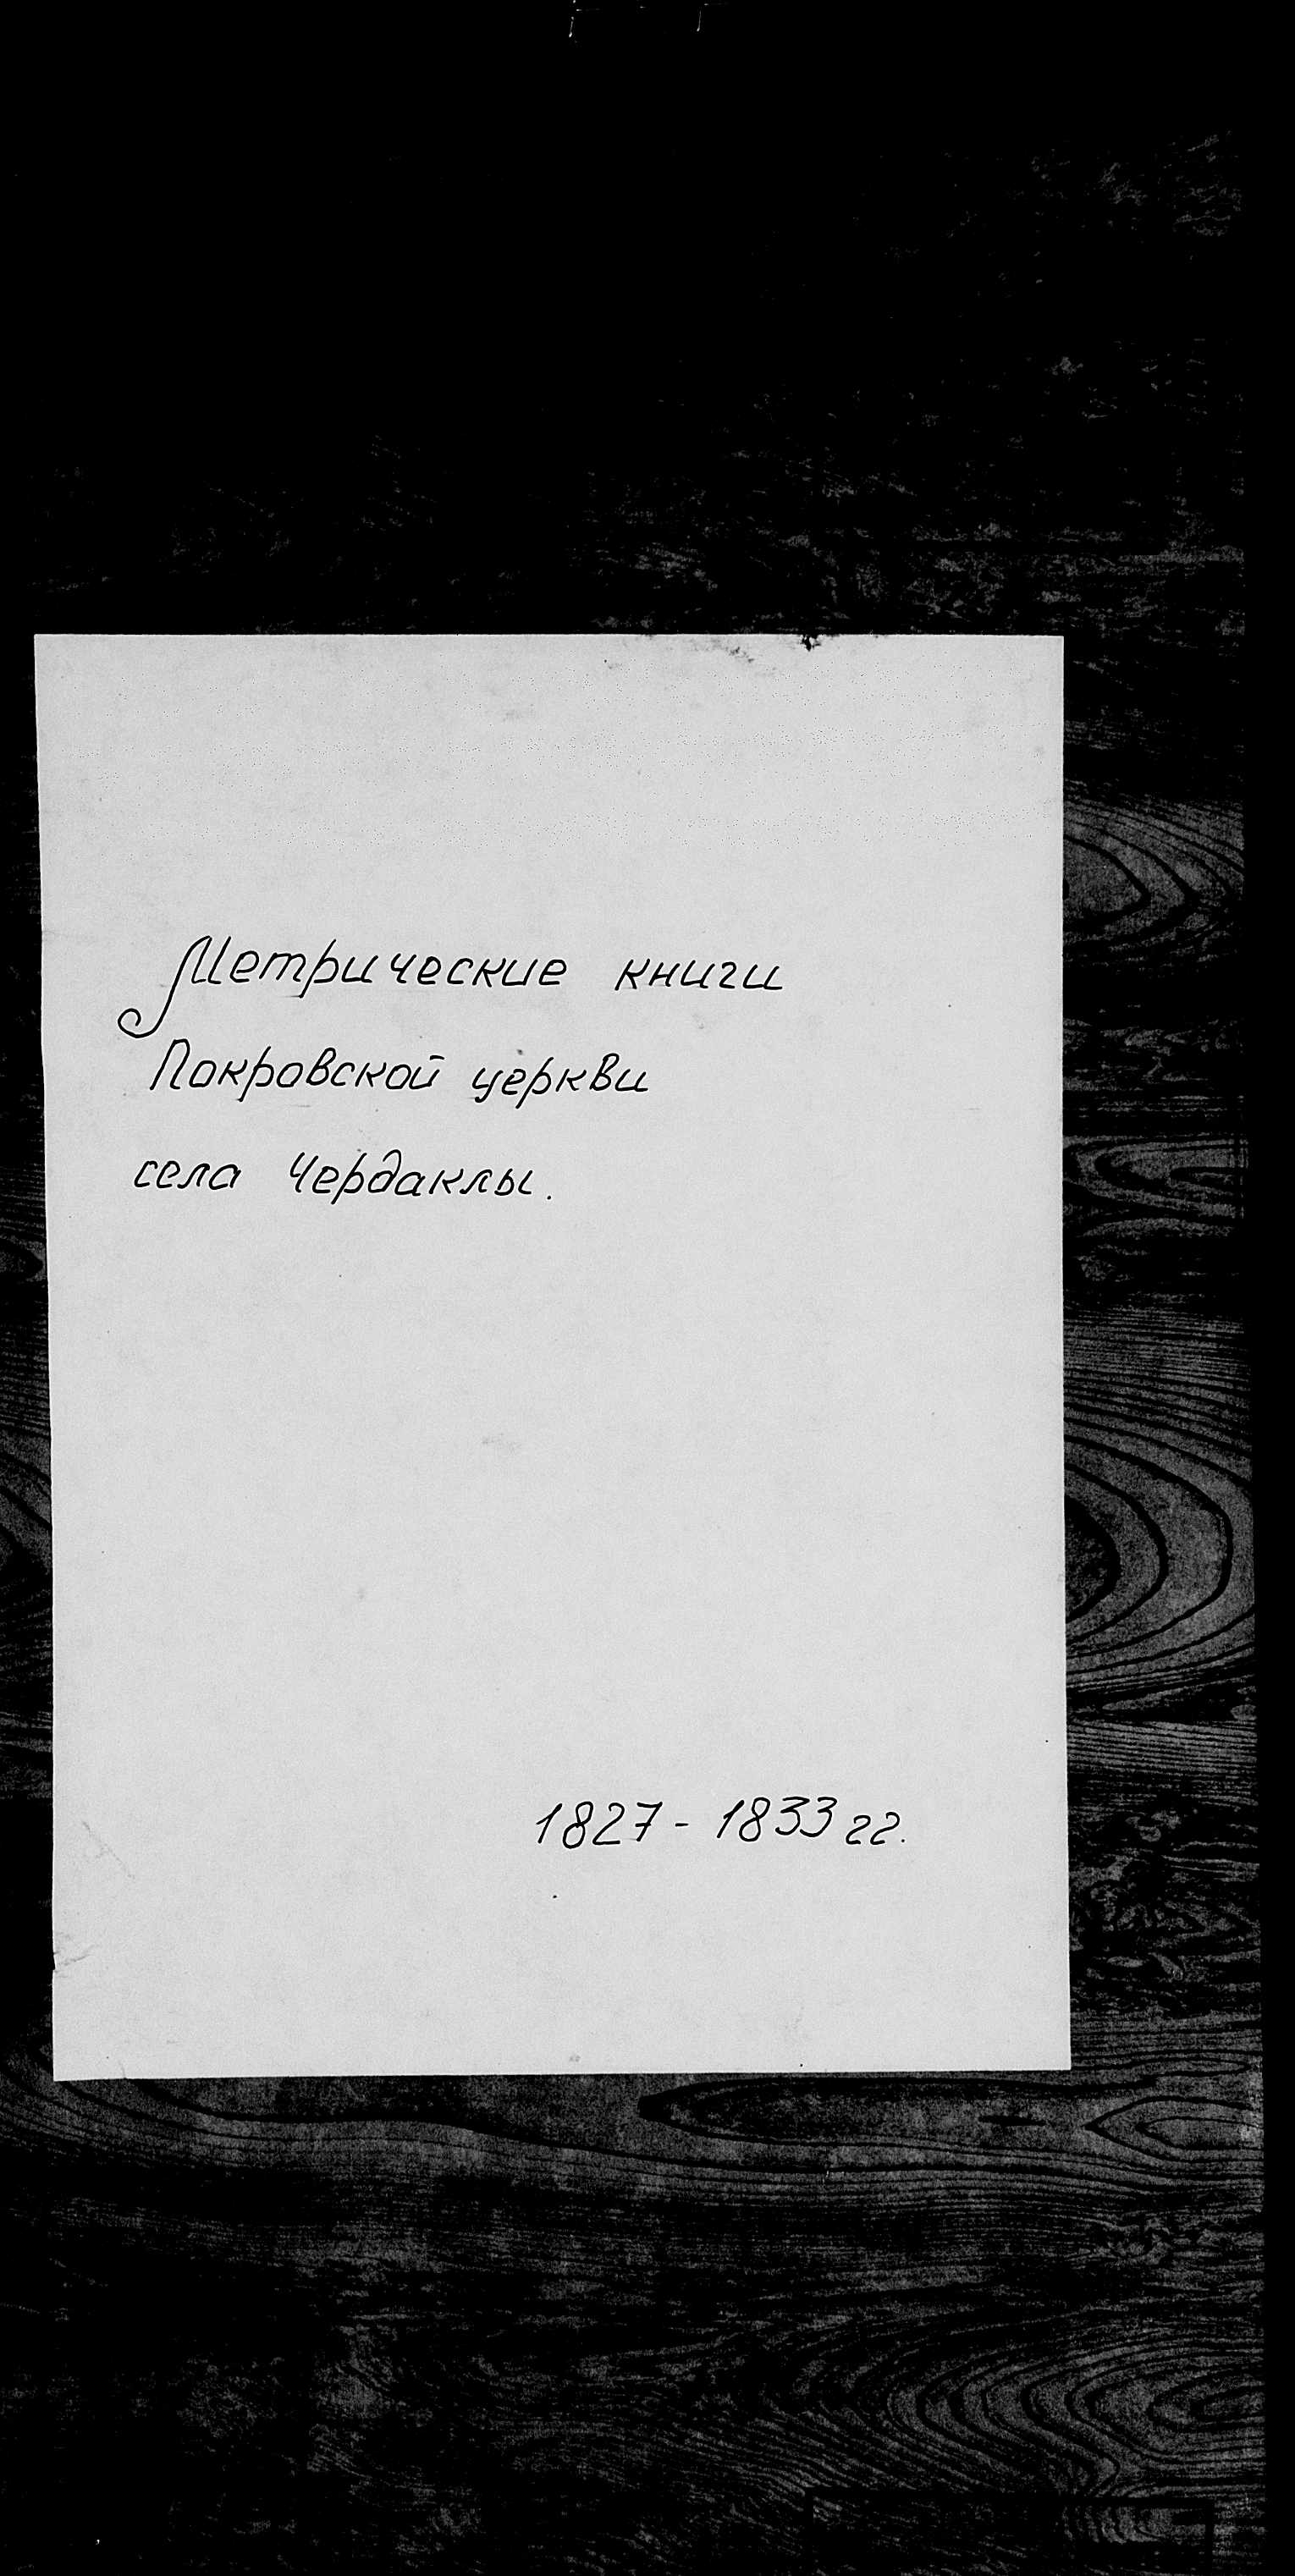 Метрические книги
Покровской церкви
села Чердаклы.
1827 - 1833 гг.